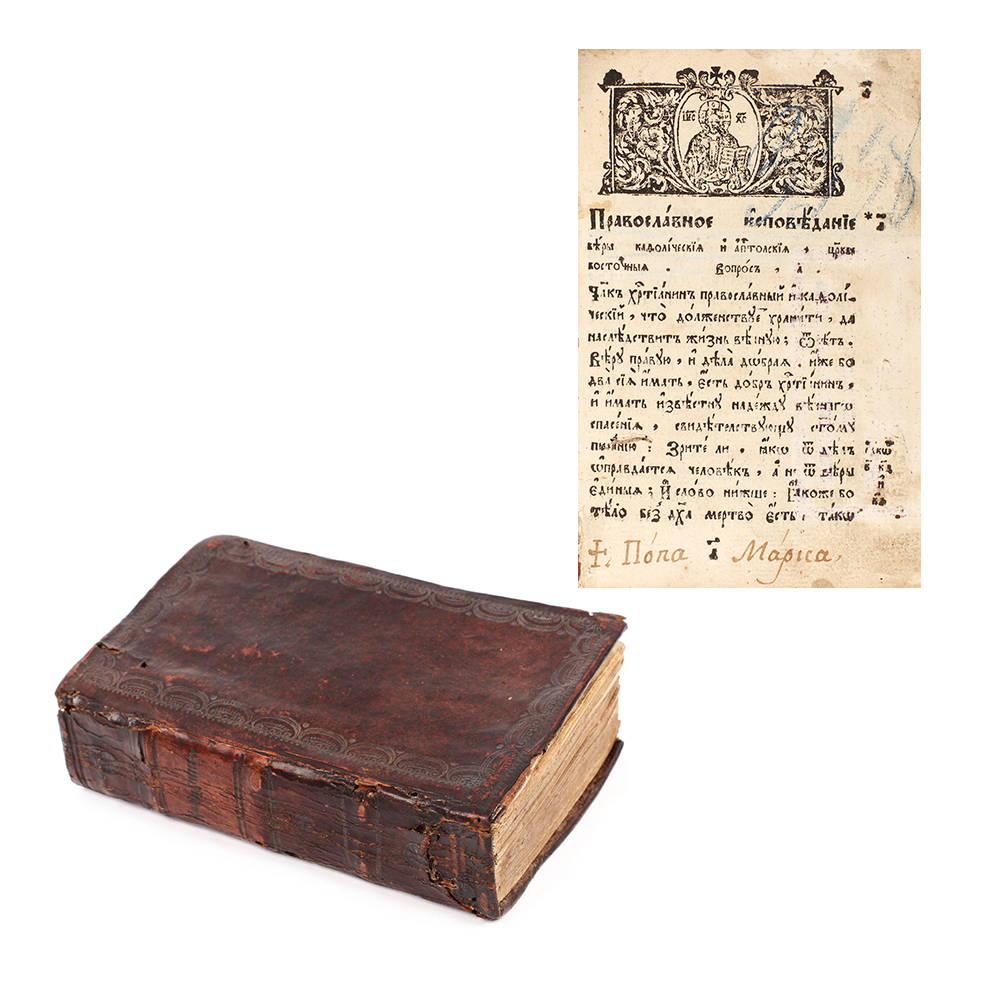 І҃С ХС
Правосла́вное и҆сповѣ́данїе * а҃
вѣ́ры каѳоли́ческїѧ и҆ а҆пⷭ҇толскїѧ , цр҃кве
восто́чныѧ . Вопро́съ , а҃ .
Чл҃вкъ хрⷭ҇тїа́нинъ правосла́вный и҆ каѳолі́-
ческїй , что̀ до́лженствуе храни́ти , да
наслѣ́дствитъ жи́знь вѣ́чную ; Ѿвѣ́тъ .
Вѣ́ру пра́вую , и҆ дѣла̀ дѡ́браѧ . и҆́же бо
два̀ сїѧ̑ и҆́мать , є҆́сть до́бръ хрⷭ҇тїа́нинъ ,
и҆ и҆́мать и҆звѣ́стну наде́жду вѣ́чнагѡ
спасе́нїѧ , свидѣ́телствующу ст҃о́му
писа́нїю : Зри́те ли , ꙗ҆́кѡ ѿ дѣ́лъ
ѡ҆правда́етсѧ человѣ́къ , а҆ не ѿ вѣ́ры
є҆ди́ныѧ ; И҆ сло́во ни́жше : Ꙗ҆́коже бо
тѣ́ло без̾ дх҃а ме́ртво є҆́сть , та́кѡ
Ꙗ҆́кѡ
+ По́па Ма́рка,